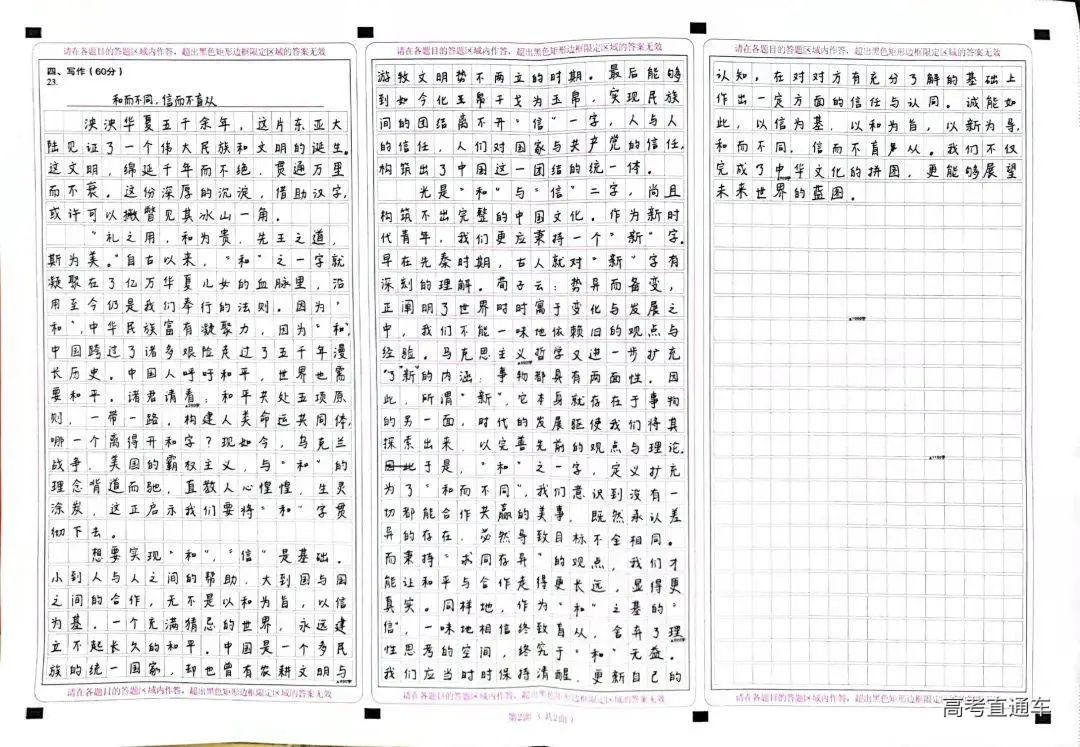 请在各题目的答题区域内作答，超出黑色矩形边框限定区域的答案无效
四、写作（60分）
23.
和而不同，信而不盲从
泱泱华夏五千余年，这片东亚大
陆见证了一个伟大民族和文明的诞生。
这文明，绵延千年而不绝，贯通万里
而不衰。这份深厚的沉淀，借助汉字，
或许可以撇瞥见其冰山一角。
“礼之用，和为贵，先王之道，
斯为美。”自古以来，“和”之一字就
凝聚在了亿万华夏儿女的血脉里，沿
用至今仍是我们奉行的法则。因为“
和”，中华民族富有凝聚力，因为“和”，
中国跨过了诸多艰险走过了五千年漫
长历史。中国人呼吁和平，世界也需
要和平。诸君请看：和平共处五项原
则，一带一路，构建人类命运共同体，
哪一个离得开和字？现如今，乌克兰
战争，美国的霸权主义，与“和”的
理念背道而驰，直教人心惶惶，生灵
涂炭，这正启示我们要将“和”字贯
彻下去。
想要实现“和”，“信”是基础。
小到人与人之间的帮助，大到国与国
之间的合作，无不是以和为旨，以信
为基。一个充满猜忌的世界，永远建
立不起长久的和平。中国是一个多民
族的统一国家，却也曾有农耕文明与
请在各题目的答题区域内作答，超出黑色矩形边框限定区域的答案无效
请在各题目的答题区域内作答，超出黑色矩形边框限定区域的答案无效
游牧文明势不两立的时期。最后能够
到如今化玉帛干戈为玉帛，实现民族
间的团结离不开“信”一字，人与人
的信任，人们对国家与共产党的信任，
构筑出了中国这一团结的统一体。
光是“和”与“信”二字，尚且
构筑不出完整的中国文化。作为新时
代青年，我们更应秉持一个“新”字。
早在先秦时期，古人就对“新”字有
深刻的理解。荀子云：势异而备变，
正阐明了世界时时寓于变化与发展之
中，我们不能一味地依赖旧的观点与
经验。马克思主义哲学又进一步扩充
了“新”的内涵：事物都具有两面性。因
此，所谓“新”，它本身就存在于事物
的另一面，时代的发展驱使我们将其
探索出来，以完善先前的观点与理论。
因此于是，“和”之一字，定义扩充
为了“和而不同”，我们意识到没有一
切都能合作共赢的美事，既然承认差
异的存在，必然导致目标不全相同。
而秉持“求同存异”的观点，我们才
能让和平与合作走得更长远，显得更
真实。同样地，作为“和”之基的“
信”，一味地相信终致盲从，舍弃了理
性思考的空间，终究于“和”无益。
我们应当时时保持清醒，更新自己的
请在各题目的答题区域内作答，超出黑色矩形边框限定区域的答案无效
第2面（共2面）
请在各题目的答题区域内作答，超出黑色矩形边框限定区域的答案无效
认知，在对对方有充分了解的基础上
作出一定方面的信任与认同。诚能如
此，以信为基，以和为旨，以新为导，
和而不同，信而不盲从。我们不仅
完成了中华文化的拼图，更能够展望
未来世界的蓝图。
请在各题目的答题区域内作答，超出黑色矩形边框限定区域的答案无效
高考直通车